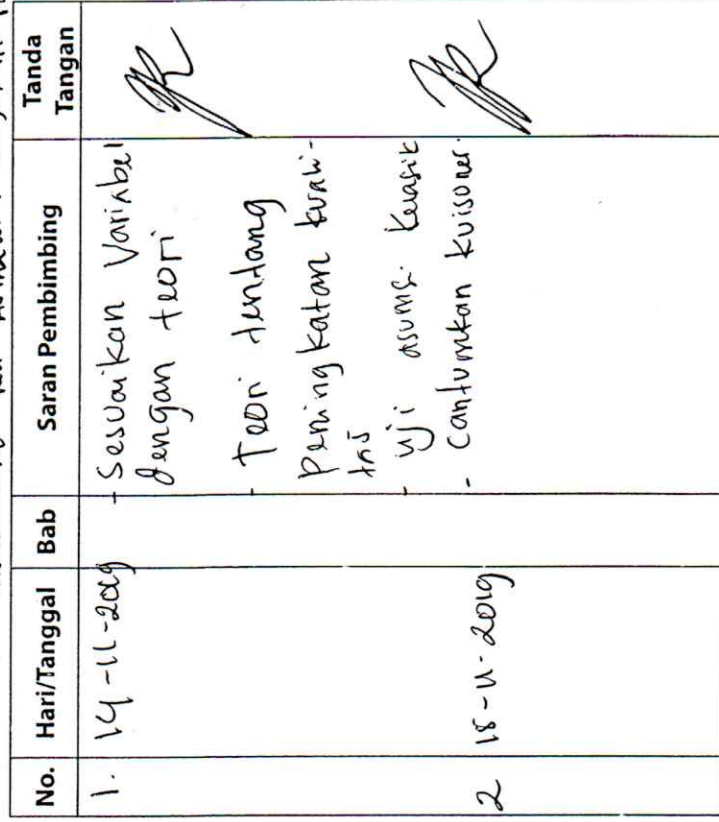 No. Hari/Tanggal Bab Saran Pembimbing Tanda Tangan
1. 14-11-2019 - Sesuaikan Variabel
dengan teori
- Teori tentang
Peningkatan kuali-
tas
- uji asumsi klasik
2 18-11-2019 - cantumkan kuisoner.